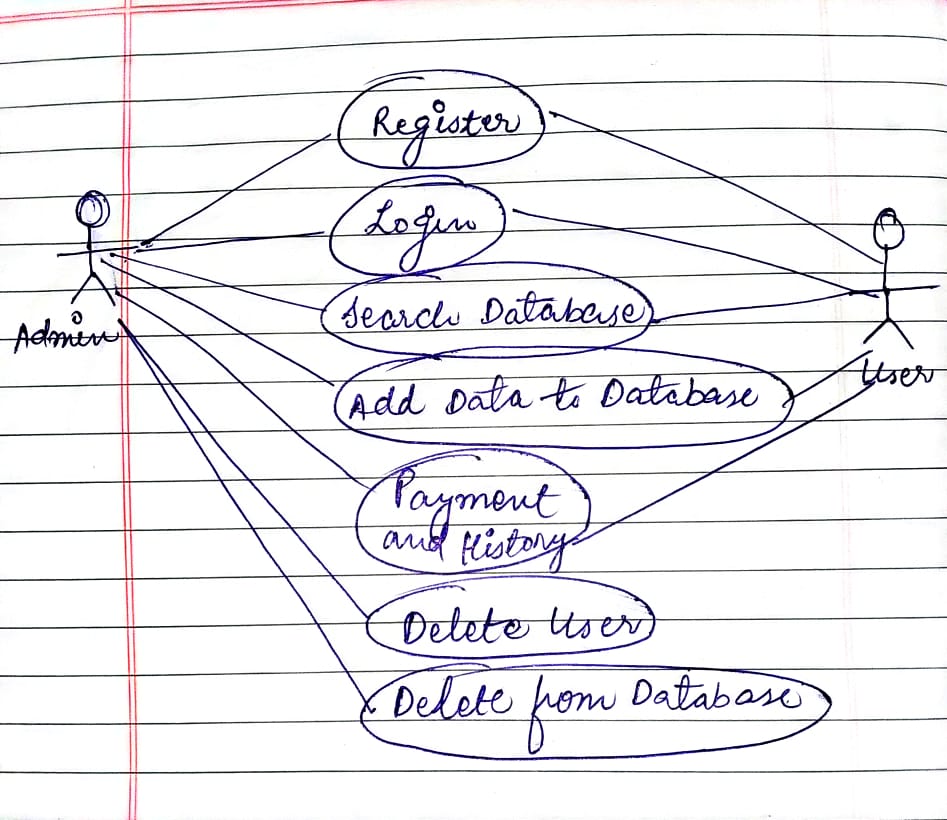 Register
Login
Search Database
Admin
User
Add Data to Database
Payment
and History
Delete User
Delete from Database